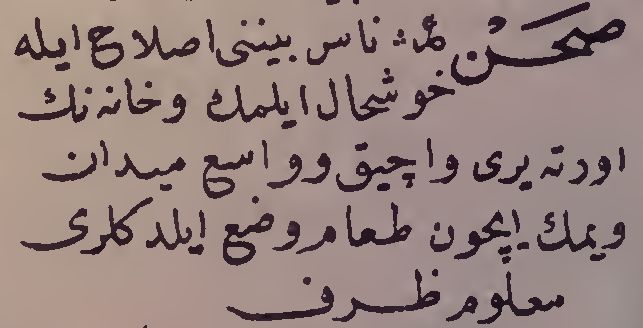 صحن ناس بيننى اصلاح ايله
خوشحال ايلمك وخانه نك
اورته يرى واچيق وواسع ميدان
ويمك ايچون طعام وضع ايلدكلرى
معلوم ظرف